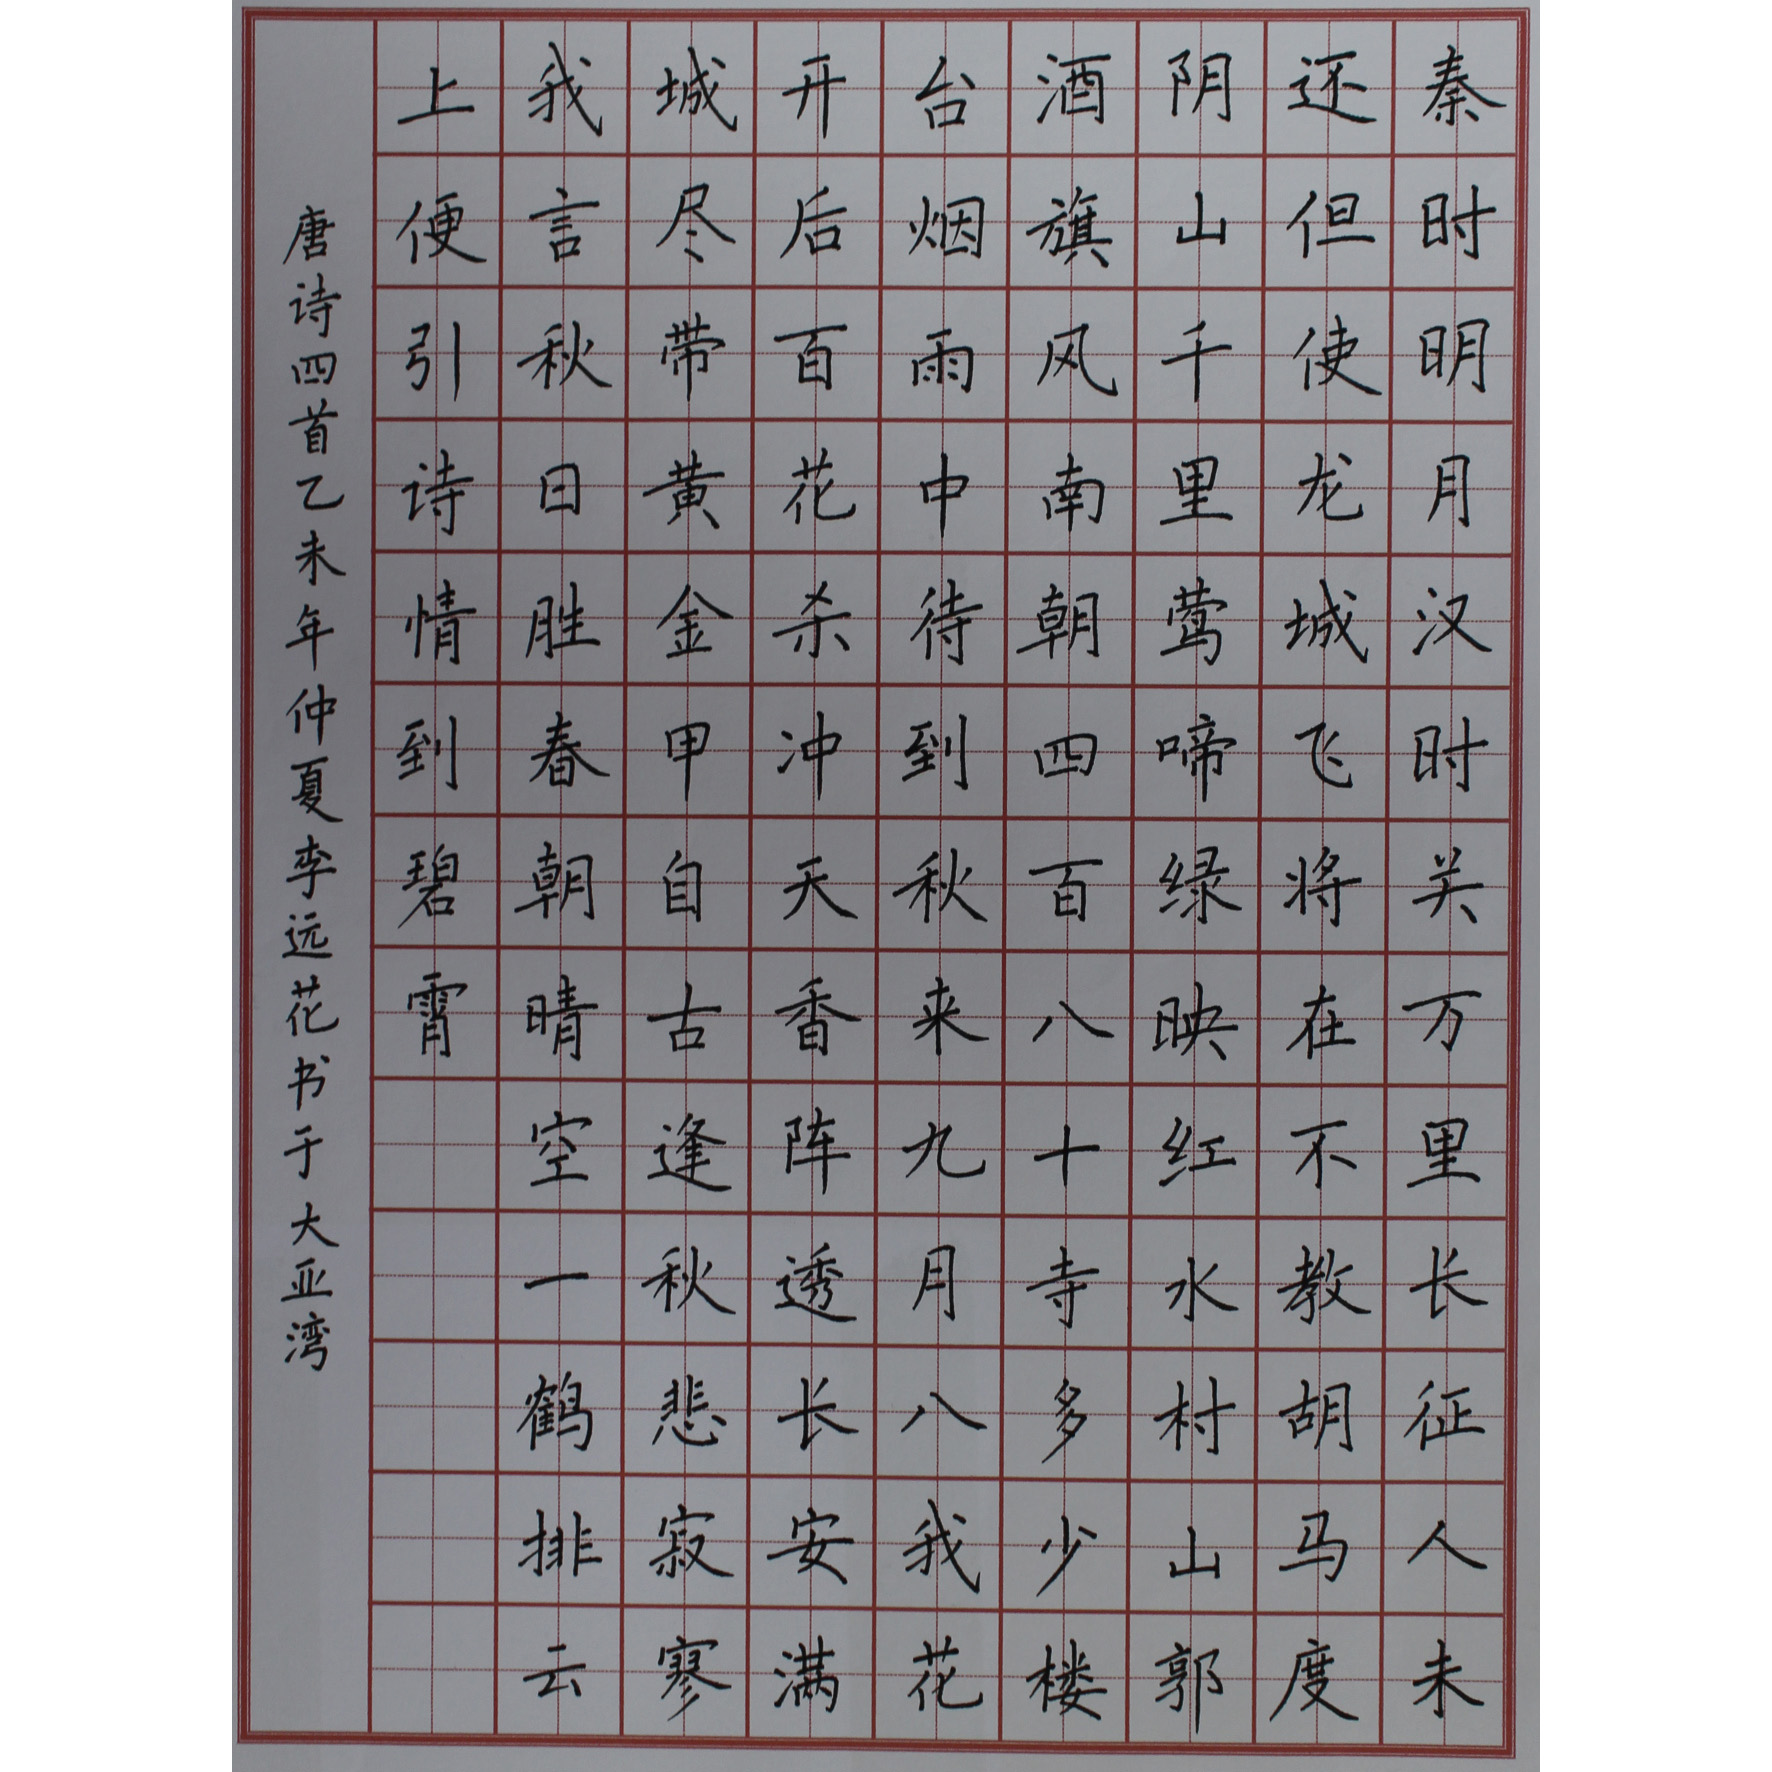 秦时明月汉时关万里长征人未
还但使龙城飞将在不教胡马度
阴山千里莺啼绿映红水村山郭
酒旗风南朝四百八十寺多少楼
台烟雨中待到秋来九月八我花
开后百花杀冲天香阵透长安满
城尽带黄金甲自古逢秋悲寂寥
我言秋日胜春朝晴空一鹤排云
上便引诗情到碧霄
唐诗四首乙未年仲夏李远花书于大亚湾